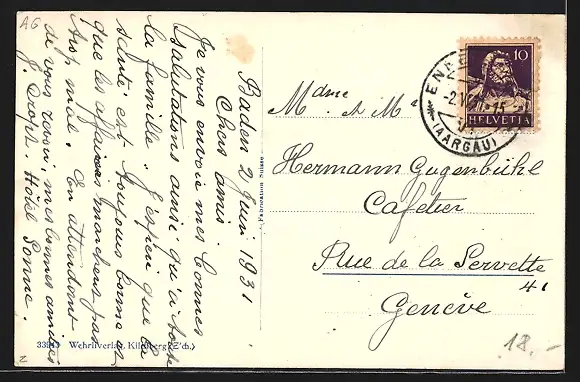 AG
Baden 2 Juin 1931
Chers amis.
Je vous envoie mes bonnes
salutations ainsi qu'à toute
la famille. J'espère que la
santé est toujours bonne et
que les affaires marchent pas
trop mal. En attendant
de vous revoir, mes bonnes amitiés
J. Hôtel Sonne.
33243 Wehrliverlag, Kilchberg (Z'ch.)
Fabrication Suisse
10
HELVETIA
(AARGAU)
Mdme et Mr
Hermann Gugenbühl
Cafetier
Rue de la Servette
41
Genève
18.-
2